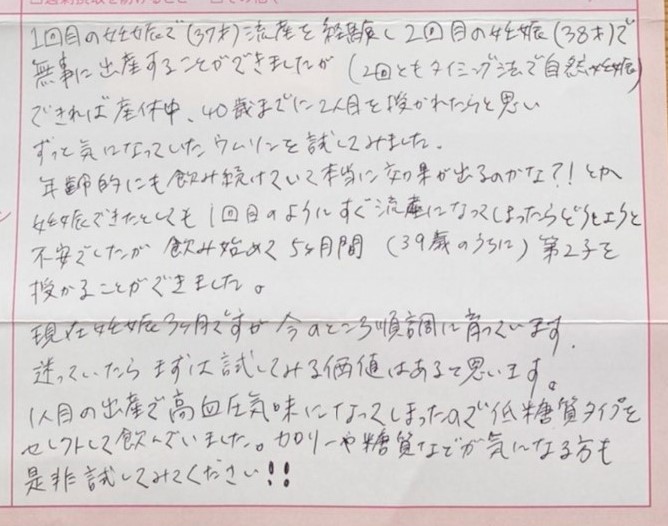 1回目の妊娠で(37才)流産を経験し2回目の妊娠(38才)で
無事に出産することができましたが(2回ともタイミング法で自然妊娠)
できれば産休中、40歳までに2人目を授かれたらと思い
ずっと気になっていたウムリンを試してみました。
年齢的にも飲み続けていて本当に効果が出るのかな?!とか
妊娠できたとしても1回目のようにすぐ流産になってしまったらどうしようと
不安でしたが 飲み始めて5ヶ月間(39歳のうちに)第2子を
授かることができました。
現在妊娠3ヶ月ですが今のところ順調に育っています.
迷っていたらまずは試してみる価値はあると思います。
1人目の出産で高血圧気味になってしまったので低糖質タイプを
セレクトして飲んでいました。カロリーや糖質などが気になる方も
是非試してみてください!!